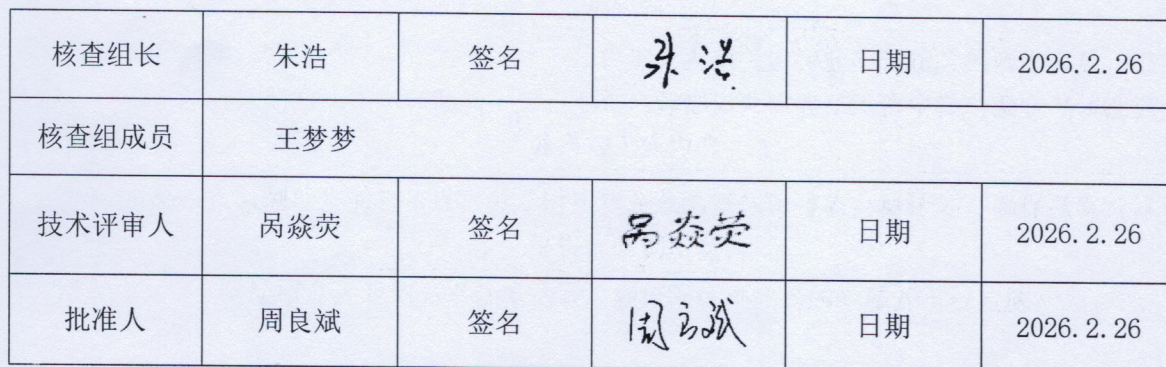 核查组长 朱浩 签名 朱浩 日期 2026.2.26
核查组成员 王梦梦
技术评审人 呙焱荧 签名 呙焱荧 日期 2026.2.26
批准人 周良斌 签名 周良斌 日期 2026.2.26